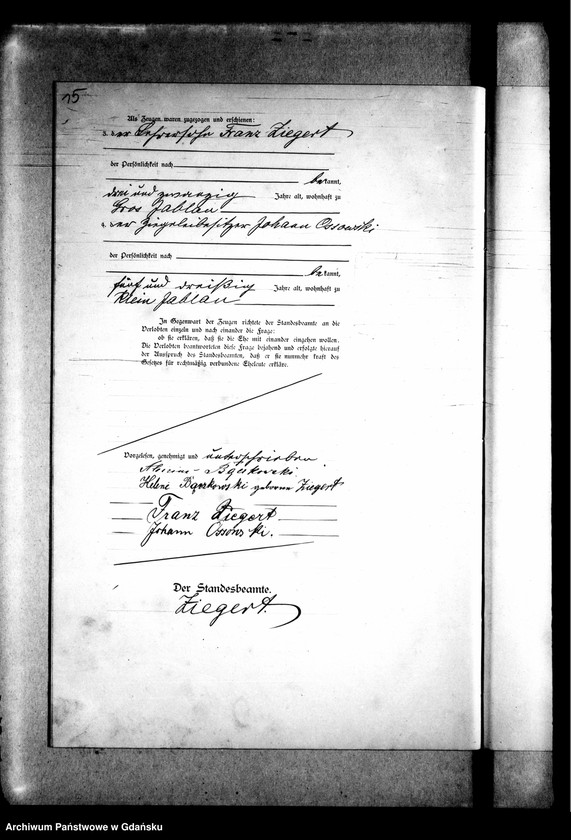 15
Als Zeugen waren zugezogen und erschienen:
3. der Lehrersohn Franz Ziegert
der Persönlichkeit nach
bekannt,
drei und zwanzig Jahre alt, wohnhaft zu
Gros Jablau
4. der Ziegeleibesitzer Johann Ossowski
der Persönlichkeit nach
bekannt,
fünf und dreißig Jahre alt, wohnhaft zu
Klein Jablau
In Gegenwart der Zeugen richtete der Standesbeamte an die
Verlobten einzeln und nach einander die Frage:
ob sie erklären, daß sie die Ehe mit einander eingehen wollen.
Die Verlobten beantworteten diese Frage bejahend und erfolgte hierauf
der Ausspruch des Standesbeamten, daß er sie nunmehr kraft des
Gesetzes für rechtmäßig verbundene Eheleute erkläre.
Vorgelesen, genehmigt und unterschrieben
Bączkowski
Helene Bączkowski geborene Ziegert
Franz Ziegert
Johann Ossowski.
Der Standesbeamte.
Ziegert.
Archiwum Państwowe w Gdańsku